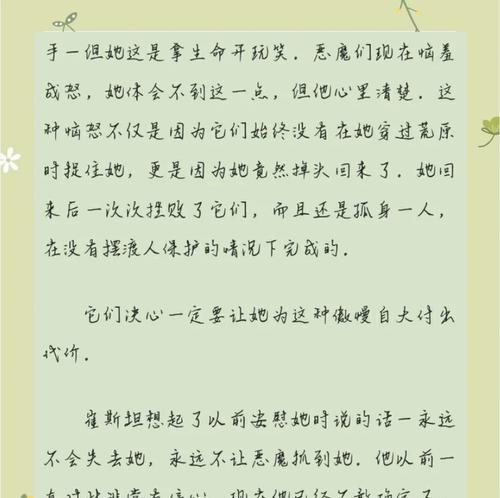 手一但她这是拿生命开玩笑．恶魔们现在恼羞
成怒，她体会不到这一点，但他心里清楚．这
种恼怒不仅是因为它们始终没有在她穿过荒原
时捉住她，更是因为她竟然掉头回来了．她回
来后一次次挫败了它们，而且还是孤身一人，
在没有摆渡人保护的情况下完成的．
它们决心一定要让她为这种傲慢自大付出
代价．
崔斯坦想起了以前安慰她时说的话一永远
不会失去她，永远不让恶魔抓到她．他以前一
直对此非常有信心，现在他已经不敢确定了